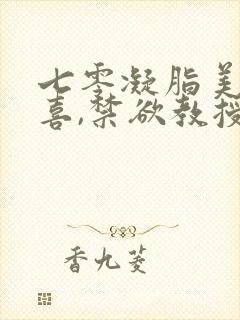 七零凝脂美
喜,禁欲教授
香九菱